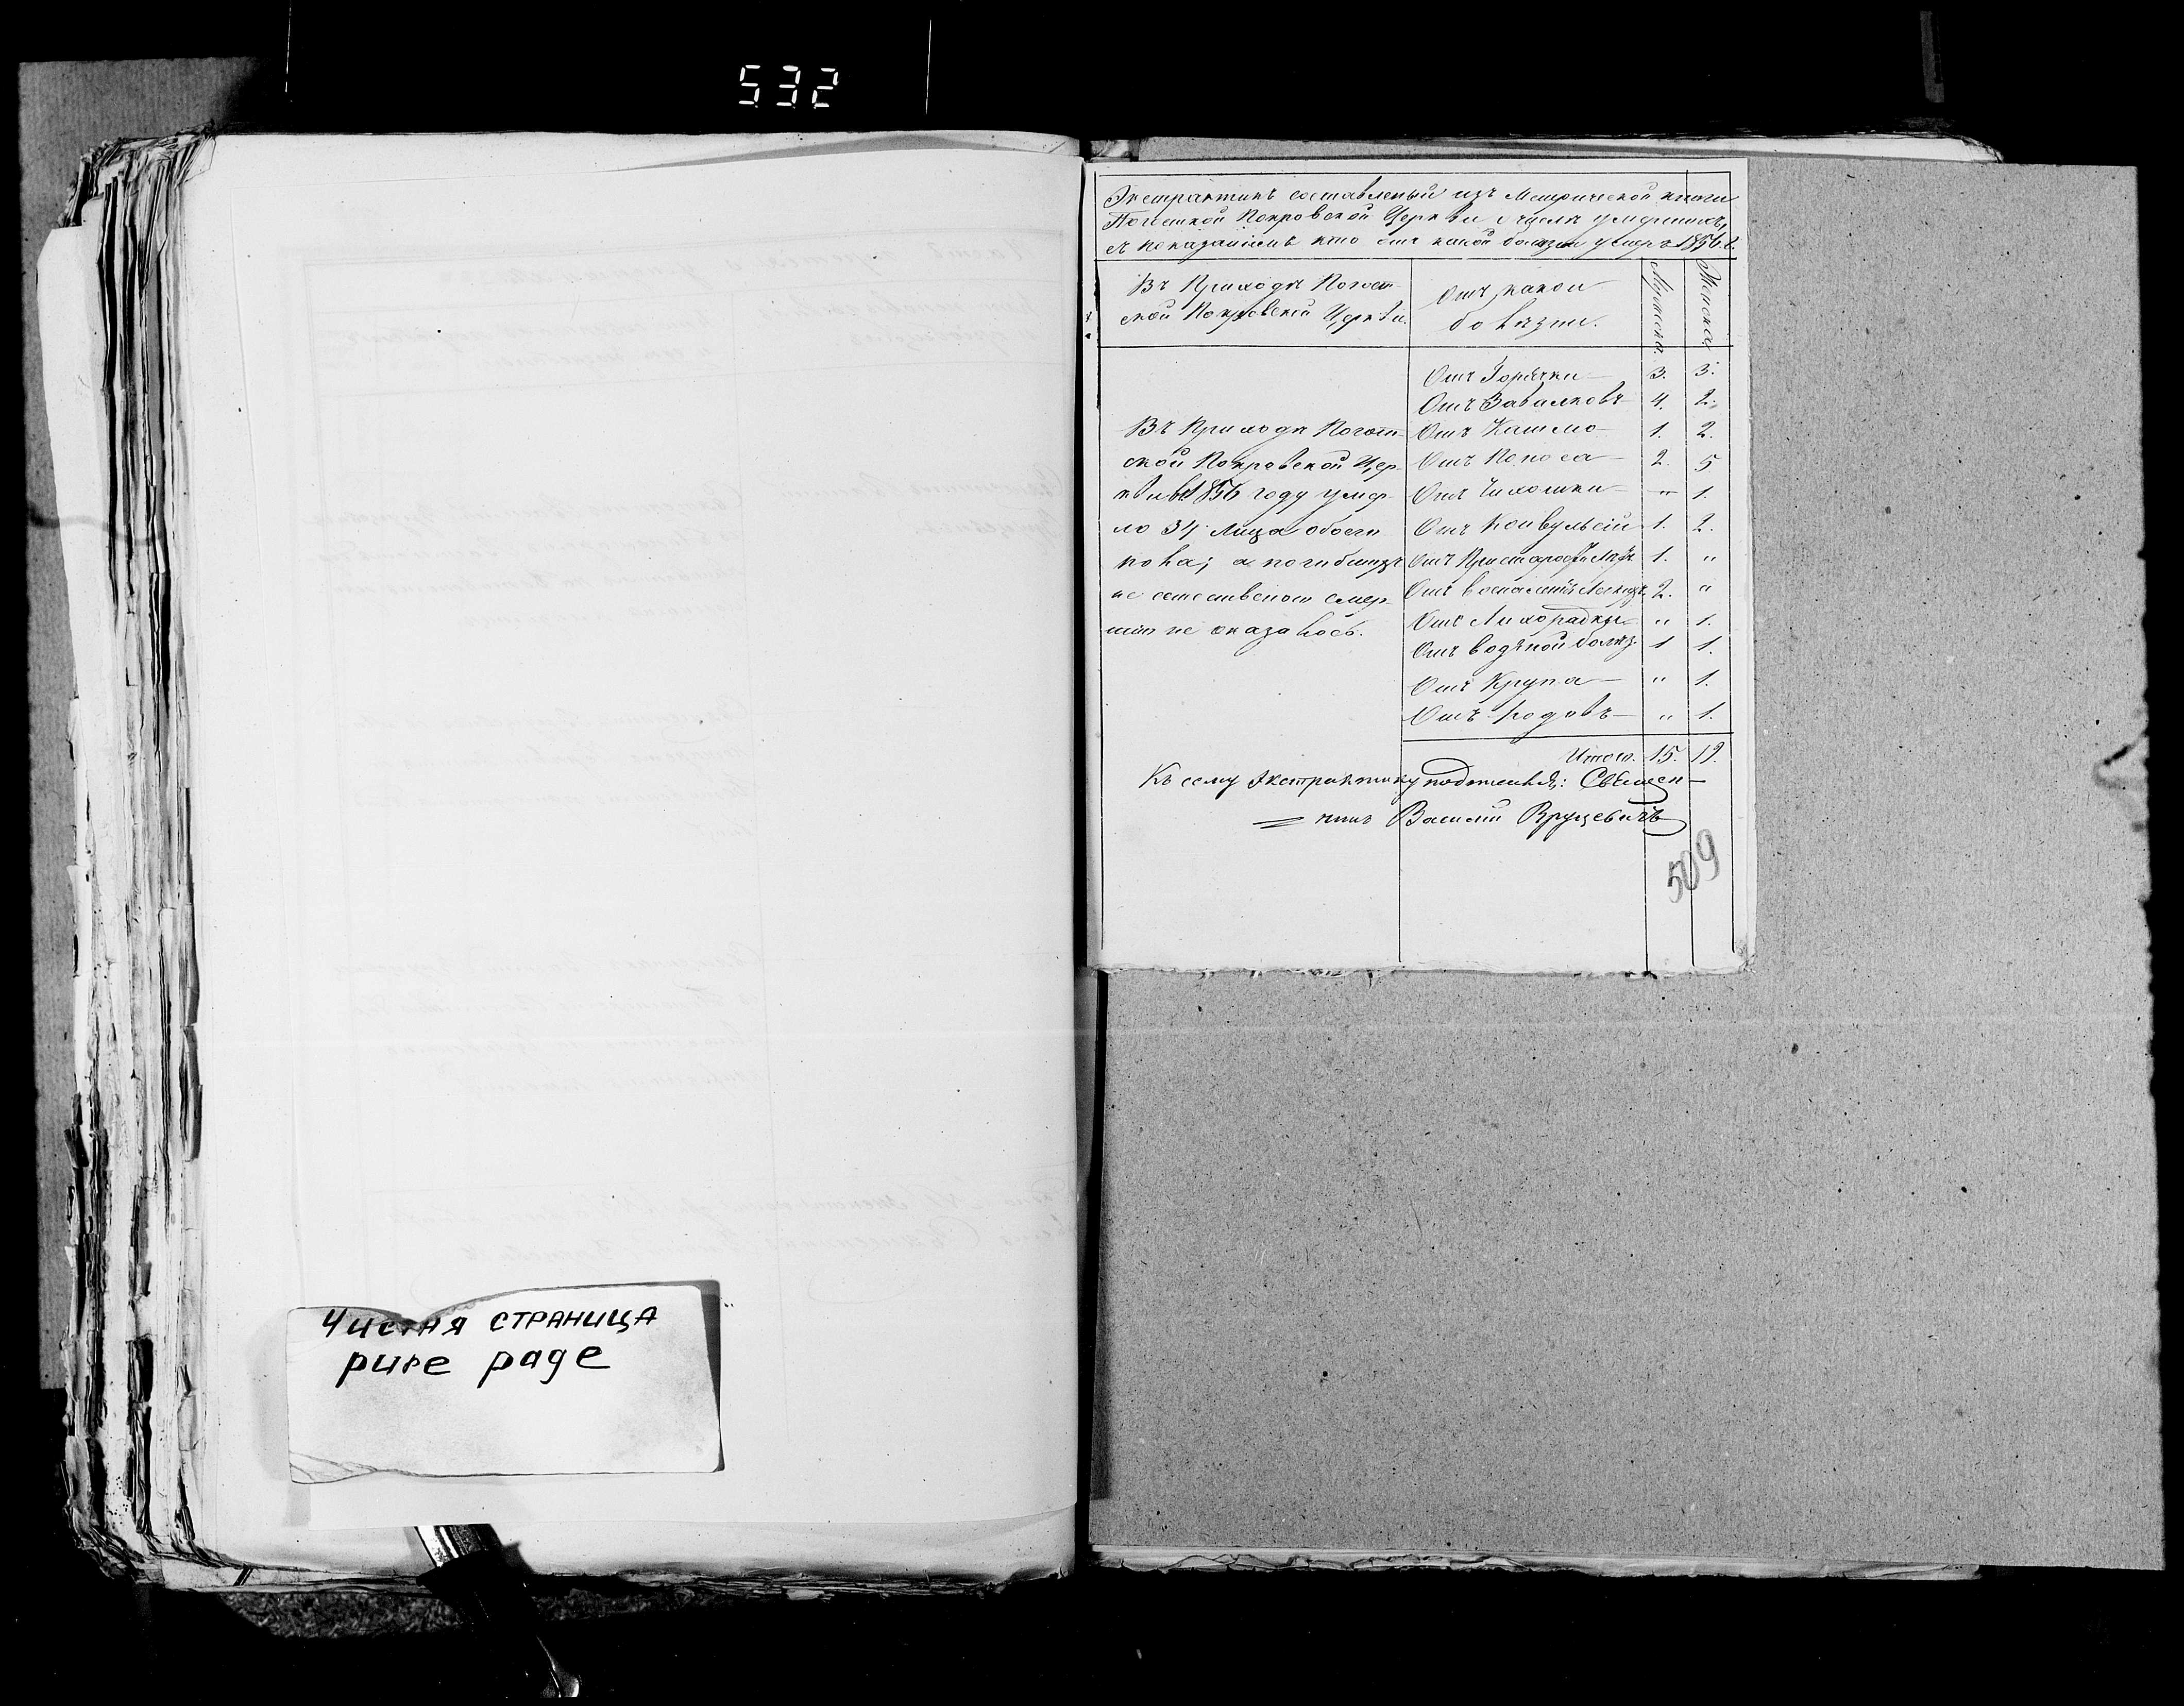 532
Чистая страница
pure page
Экстрактикъ составленый изъ Метрической книги
Погостской Покровской Церкви о числѣ умершихъ,
съ показаніемъ кто отъ какой болѣзни умеръ 1856. г.
Въ Приходѣ Погост-
ской Покровской Церкви.
Отъ какои
болѣзни.
Мужеска.
Женска
Отъ Горячки — 3. 3.
Отъ Завалковъ 4. 2.
Въ Приходѣ Погост- Отъ Кашлю — 1. 2.
ской Покровской Цер- Отъ Поноса — 2. 5
кви въ 1856 году умер- Отъ Чахотки — " 1.
ло 34 Лица обоего Отъ Конвульсіи 1. 2.
пола; а погибшихъ Отъ Престарости Лѣтъ 1. "
не естественою смер- Отъ воспаленія 2. "
тію не оказалось. Отъ Лихорадки — " 1.
Отъ водяной болѣз. 1 1.
Отъ Крупа — " 1.
Отъ Родовъ — " 1.
Итого. 15. 19.
Къ сему Экстрактику Священ-
никъ Василій Вруцевичъ
509